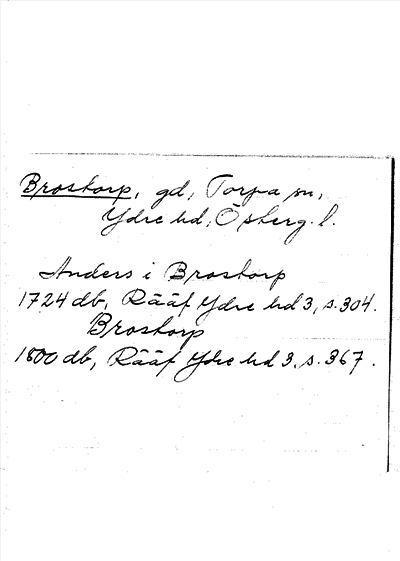 Brostorp, gd, Torpa sn,
Ydre hd, Österg. l.
Anders i Brostorp
1724 db, Rääf Ydre hd 3, s. 304.
Brostorp
1800 db, Rääf Ydre hd 3, s. 367.